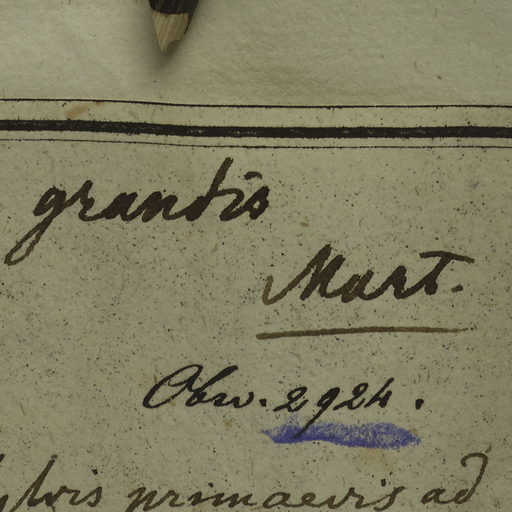 grandis
Mart.
Obsv. 2924.
sylvis primaevis ad